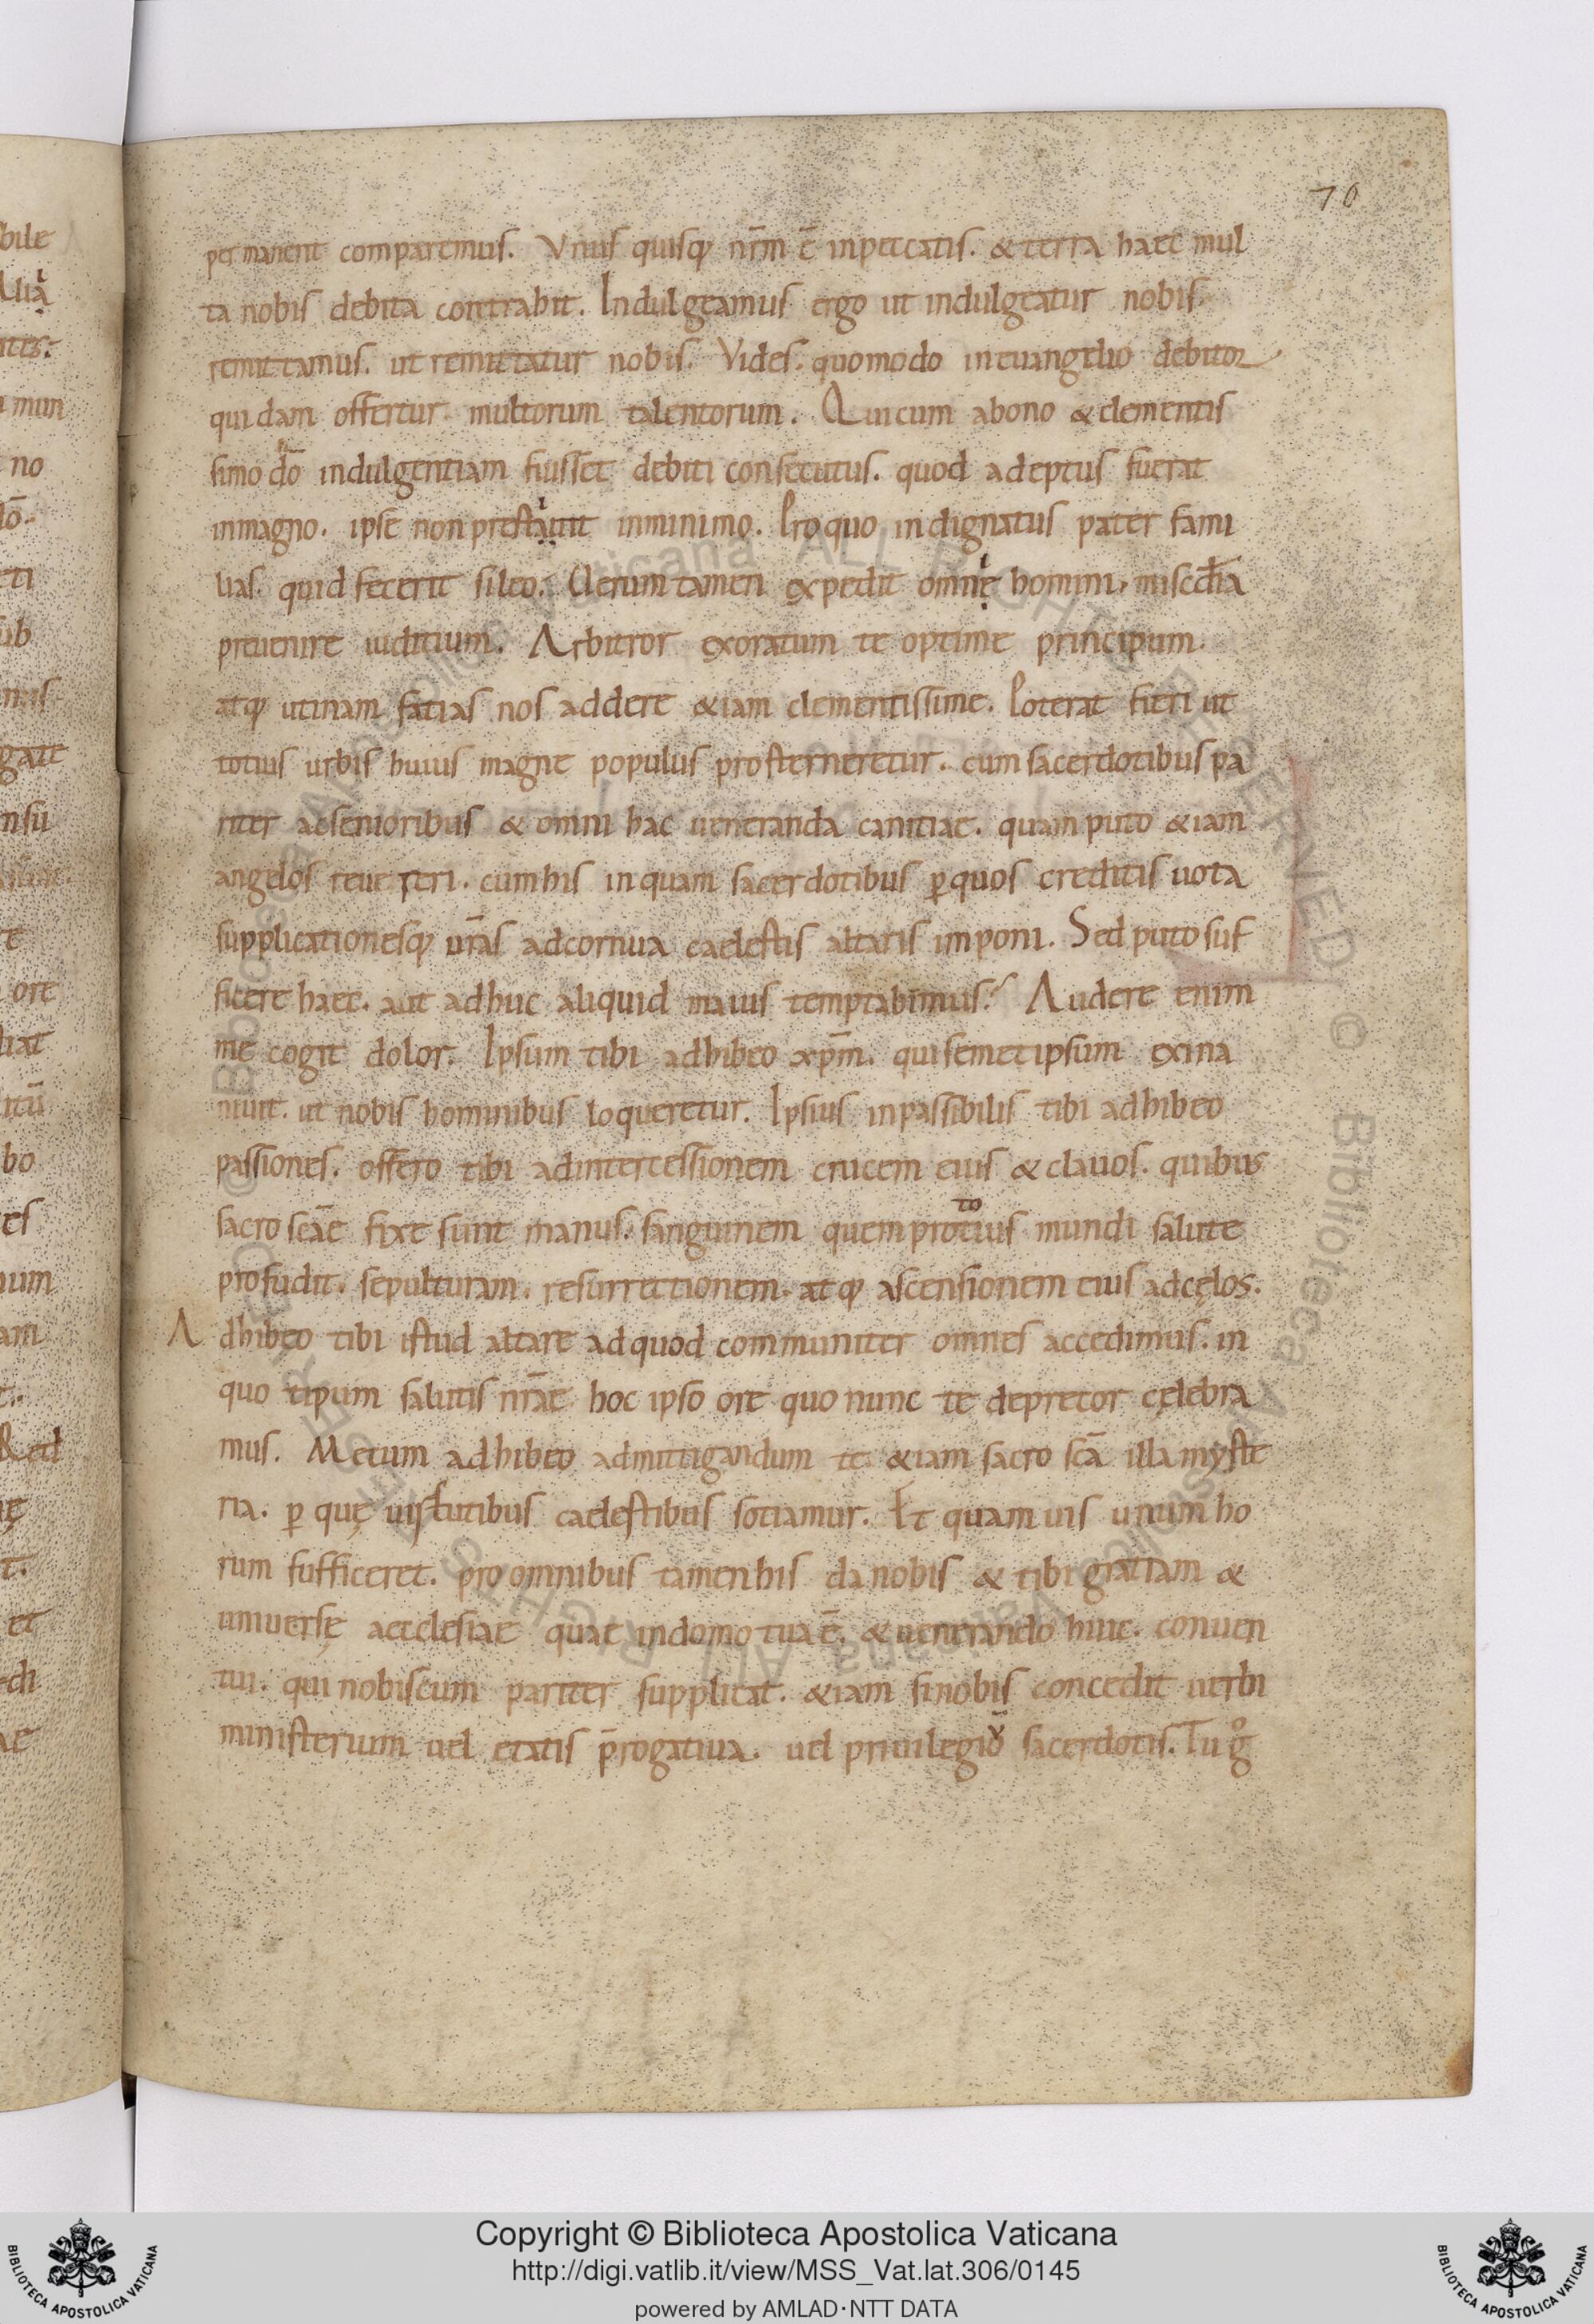 70
permanent comparemus. Vnus quisq; nr̄m ē inpeccatis. & terra haec mul
ta nobis debita contrahit. Indulgeamus ergo ut indulgeatur nobis.
remittamus. ut remittatur nobis. Vides. quomodo ineuangelio debitor
quidam offertur. multorum talentorum. Qui cum abono & clementis
simo dn̄o indulgentiam fuisset debiti consecutus. quod adeptus fuerat
inmagno. ipse non prestauit inminimo. Pro quo indignatus pater fami
lias. quid fecerit sileo. Uerum tamen expedit omni homini. miscd̄ia
preuenire iuditium. Arbitror exoratum te optime principum.
atq; utinam fatias nos addere &iam clementissime. Poterat fieri ut
totius urbis huius magne populus prosterneretur. cum sacerdotibus pa
riter acsenioribus & omni hac ueneranda canitiae. quam puto &iam
angelos reuereri. cum his inquam sacerdotibus ꝑ quos creditis uota
supplicationesq; ur̄as adcornua caelestis altaris imponi. Sed puto suf
ficere haec. aut adhuc aliquid maius temptabimus? Audere enim
me cogit dolor. Ipsum tibi adhibeo xp̄m. qui semetipsum exina
niuit. ut nobis hominibus loqueretur. Ipsius inpassibilis tibi adhibeo
passiones. offero tibi adintercessionem crucem eius & clauos. quibus
sacro scāe fixe sunt manus. sanguinem quem pro totius mundi salute
profudit. sepulturam. resurrectionem. atq; ascensionem eius adcęlos.
Adhibeo tibi istud altare ad quod communiter omnes accedimus. in
quo tipum salutis nr̄ae hoc ipso ore quo nunc te deprecor cęlebra
mus. Metum adhibeo admittigandum te. &iam sacro scā illa myste
ria. ꝑ quę uirtutibus caelestibus sotiamur. Et quam uis unum ho
rum sufficeret. pro omnibus tamen his da nobis & tibi gratiam &
uniuersę aecclesiae quae indomo tua ē. & uenerando huic. conuen
tui. qui nobiscum pariter supplicat. &iam si nobis concedit uerbi
ministerium uel etatis p̄rogatiua. uel priuilegiū sacerdotis. Tu g̊
Copyright © Biblioteca Apostolica Vaticana
http://digi.vatlib.it/view/MSS_Vat.lat.306/0145
powered by AMLAD·NTT DATA